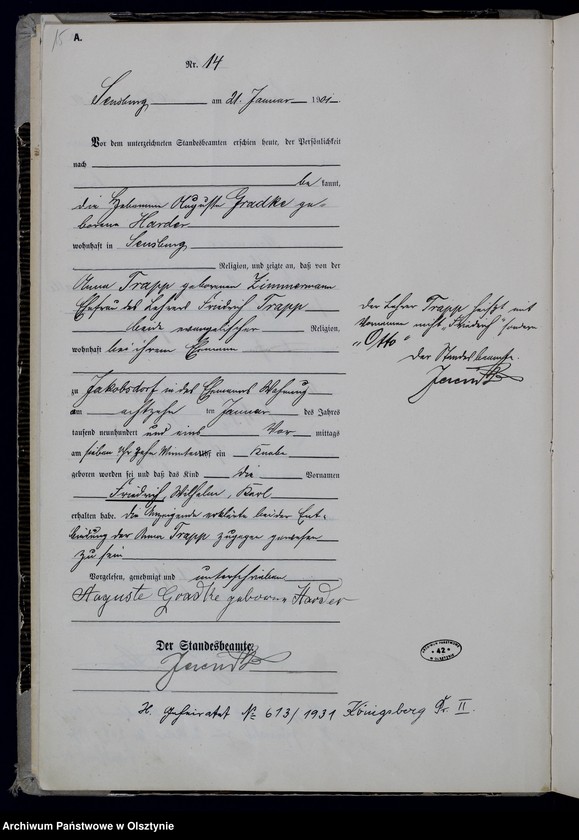 15
A.
Nr. 14
Sensburg am 21. Januar 1901.
Vor dem unterzeichneten Standesbeamten erschien heute, der Persönlichkeit
nach
be kannt,
die Hebamme Auguste Gradke ge-
borene Harder
wohnhaft in Sensburg
Religion, und zeigte an, daß von der
Anna Trapp geborenen Zimmermann
Ehefrau des Lehrers Friedrich Trapp
beide evangelischer Religion,
wohnhaft bei ihrem Ehemann
zu Jakobsdorf in des Ehemanns Wohnung
am achtzehn ten Januar des Jahres
tausend neunhundert und eins Vor mittags
am sieben Uhr zehn Minuten ein Knabe
geboren worden sei und daß das Kind die Vornamen
Friedrich, Wilhelm, Karl
erhalten habe. Die Anzeigende erklärte bei der Ent-
bindung der Anna Trapp zugegen gewesen
zu sein
Vorgelesen, genehmigt und unterschrieben
Auguste Gradke geborene Harder
Der Standesbeamte.
Der Lehrer Trapp heißt mit
Vornamen nicht „Friedrich" sondern
„Otto"
Der Standesbeamte.
ARCHIWUM PAŃSTWOWE
* 42 *
W OLSZTYNIE
H. Geheiratet No 613/1931 Königsberg Pr. II.
Archiwum Państwowe w Olsztynie